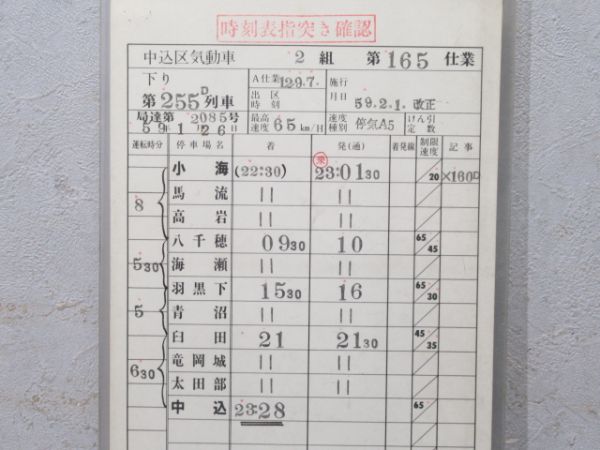 時刻表指突き確認
中込区気動車 2組 第165仕業
下り A仕業 129.7. 施行
第255D列車 出区時刻 月日 59.2.1.改正
局達第2085号 最高速度 65km/H 速度種別 停気A5 けん引定数
59年1月26日
運転時分 停車場名 着 発(通) 着発線 制限速度 記事
小海 (22:30) 乗 23:01 30 20 ×160D
馬流 〃 〃
8 高岩 〃 〃
八千穂 09 30 10 65/45
5 30 海瀬 〃 〃
羽黒下 15 30 16 65/30
5 青沼 〃 〃
臼田 21 21 30 45/35
竜岡城 〃 〃
6 30 太田部 〃 〃
中込 23:28 65